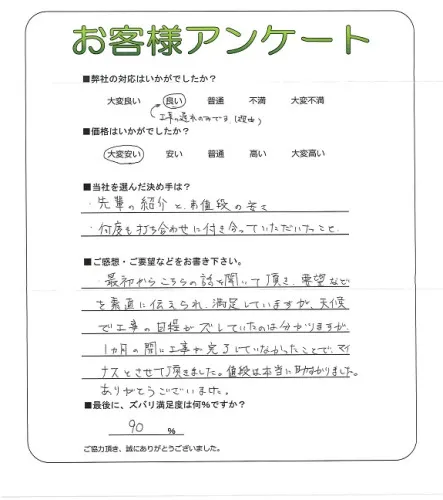 お客様アンケート
■弊社の対応はいかがでしたか?
大変良い 良い 普通 不満 大変不満
工事の遅れのみです(理由)
■価格はいかがでしたか?
大変安い 安い 普通 高い 大変高い
■当社を選んだ決め手は?
・先輩の紹介と、お値段の安さ
・何度も打ち合わせに付き合っていただいたこと
■ご感想・ご要望などをお書き下さい。
・最初からこちらの話を聞いて頂き、要望など
を素直に伝えられ、満足していますが、天候
で工事の日程がズレていたのは分かりますが、
1ヵ月の間に工事が完了していなかったことで、マイ
ナスとさせて頂きました。値段は本当に助かりました。
ありがとうございました。
■最後に、ズバリ満足度は何%ですか?
90 %
ご協力頂き、誠にありがとうございました。